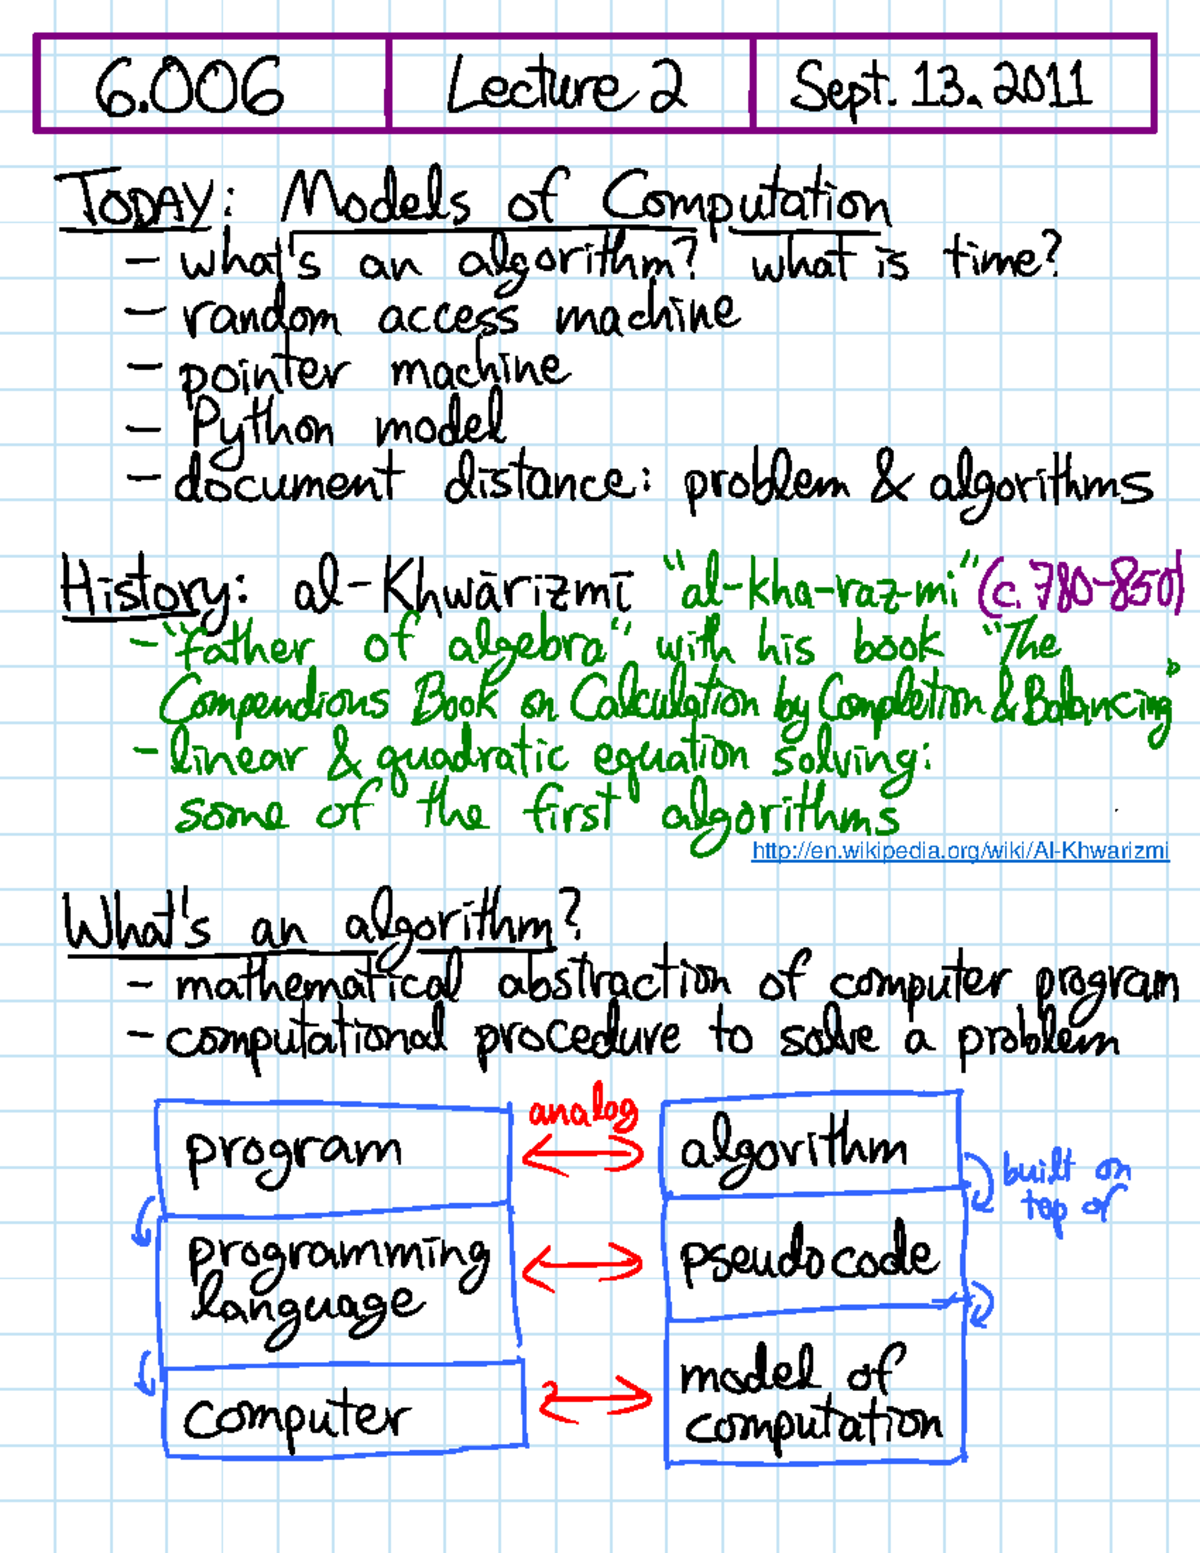 6.006 Lecture 2 Sept. 13, 2011
TODAY: Models of Computation
- what's an algorithm? what is time?
- random access machine
- pointer machine
- Python model
- document distance: problem & algorithms
History: al-Khwārizmī "al-kha-raz-mi" (c. 780-850)
- "father of algebra" with his book "The
Compendious Book on Calculation by Completion & Balancing"
- linear & quadratic equation solving:
some of the first algorithms
http://en.wikipedia.org/wiki/Al-Khwarizmi
What's an algorithm?
- mathematical abstraction of computer program
- computational procedure to solve a problem
analog
program algorithm
built on
top of
programming pseudocode
language
model of
computer computation